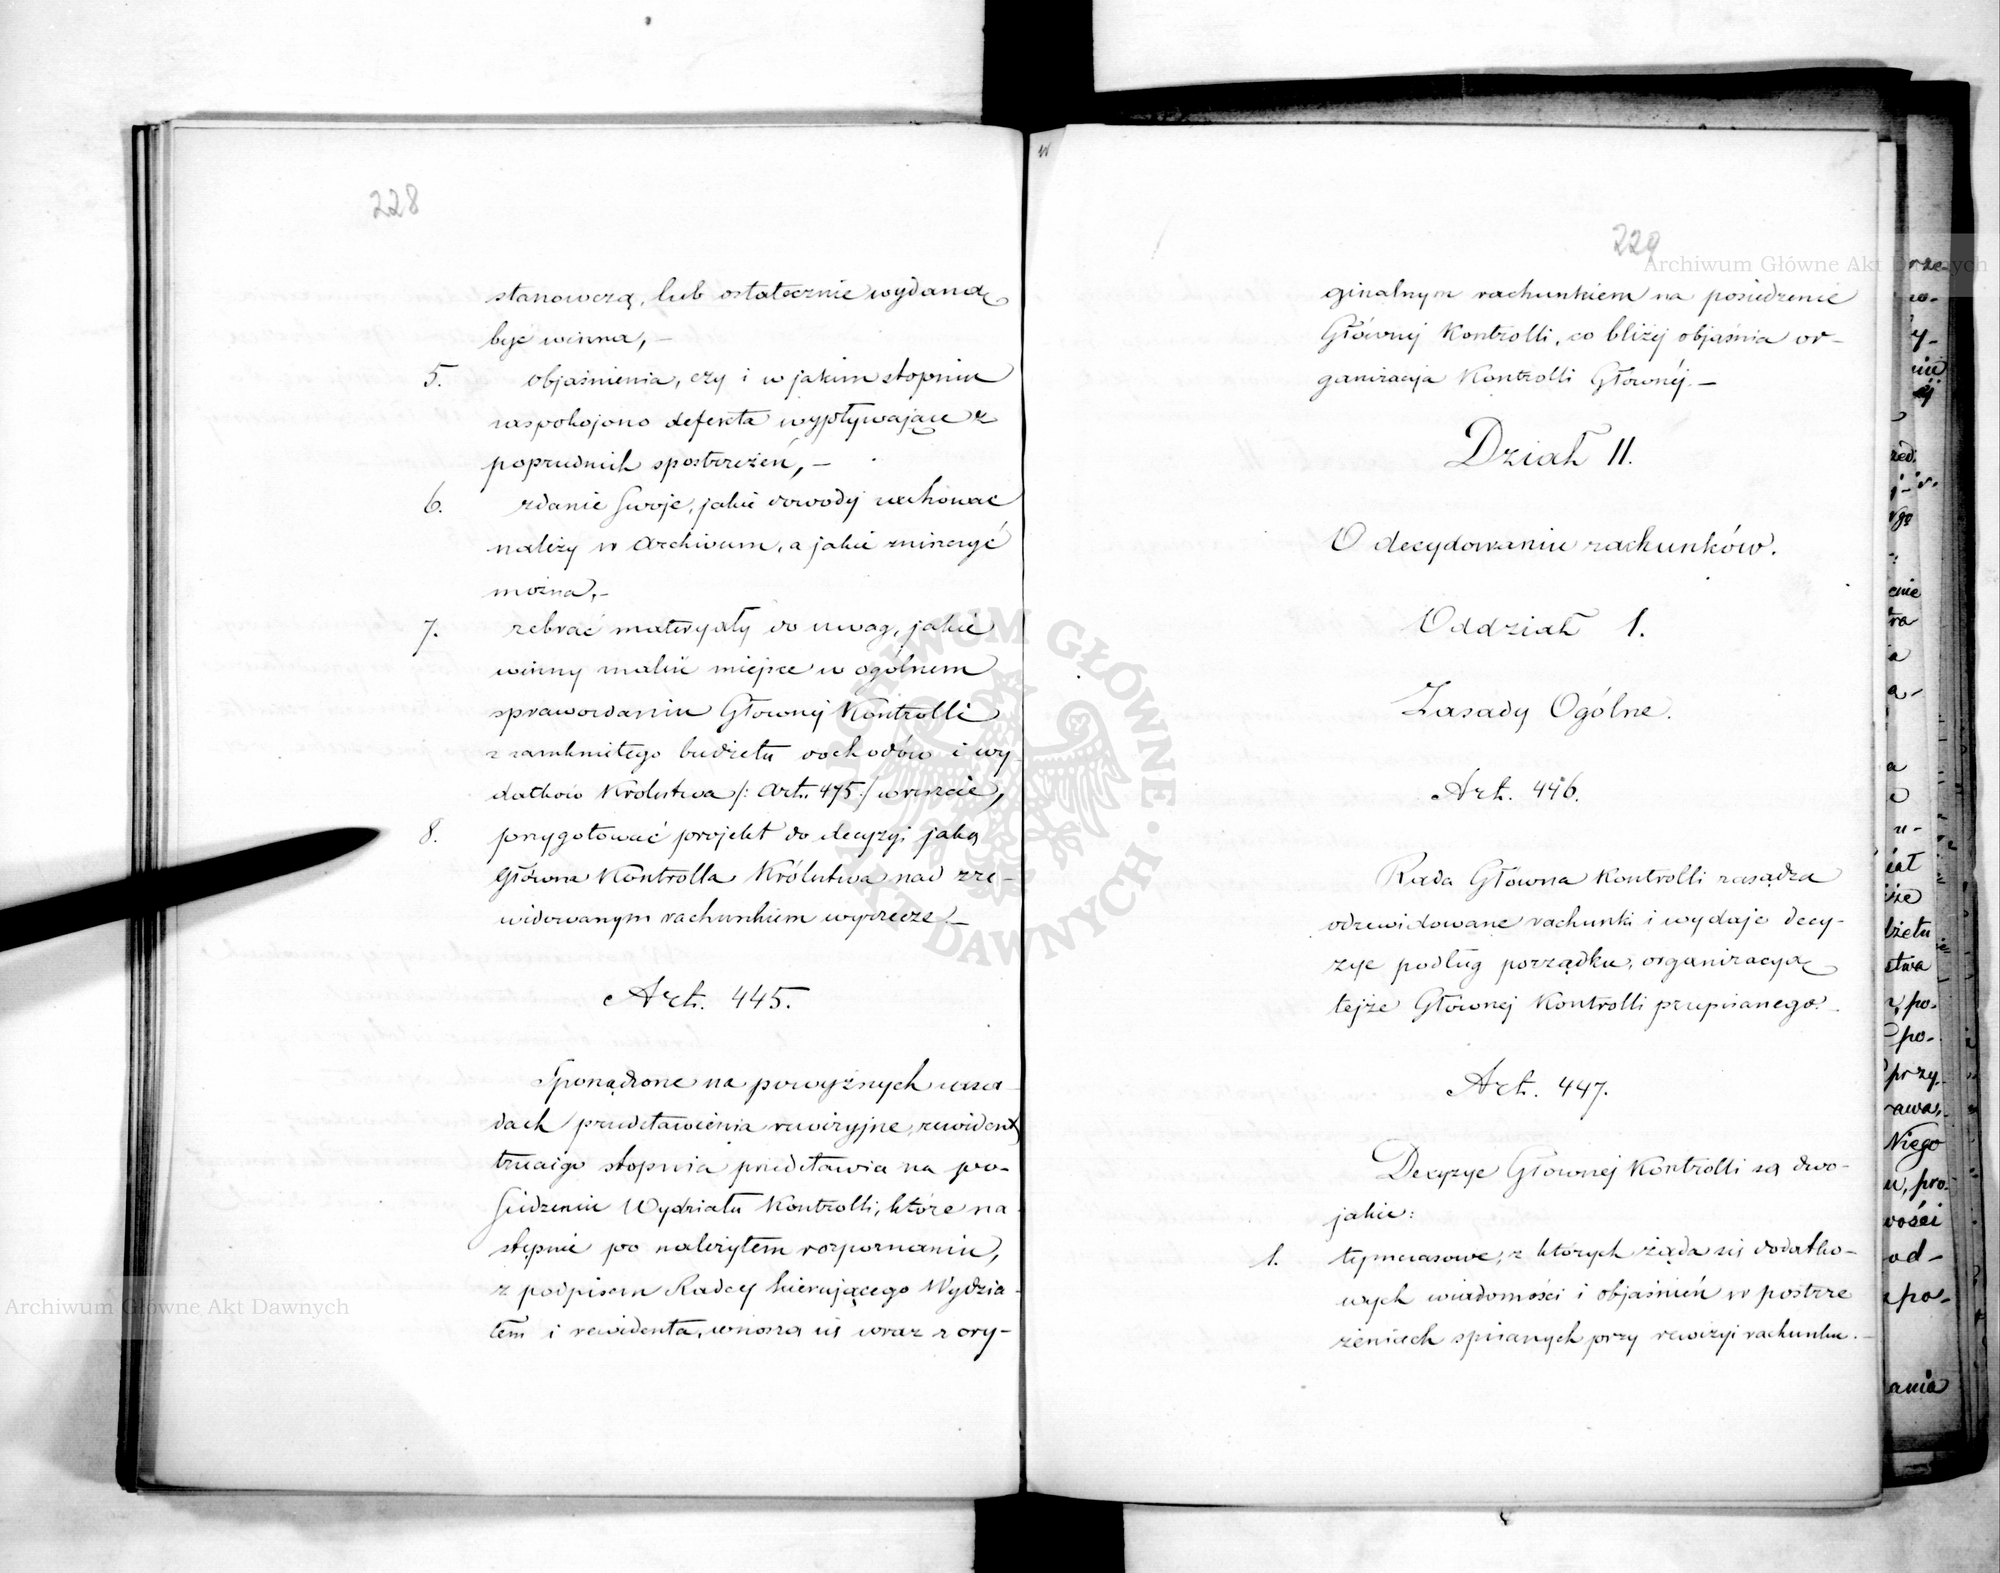 228
stanowczą, lub ostatecznie wydaną
być winna, –
5. objaśnienia, czy i w jakim stopniu
zaspokojono defekta wypływające z
poprzednich spostrzeżeń, –
6. zdanie swoje, jakie dowody zachować
należy w Archivum, a jakie zniszczyć
można, –
7. zebrać materyały do uwag, jakie
winny znaleść miejsce w ogólnem
sprawozdaniu Głównej Kontrolli
z zamkniętego budżetu dochodów i wy
datków Królestwa /: Art. 475 :/ wreszcie,
8. przygotować projekt do decyzyi jaką
Główna Kontrolla Królestwa nad zre-
widowanym rachunkiem wyrzecze. –
Art. 445.
Sporządzone na powyższych zasa-
dach przedstawienia rewizyjne, rewident
trzeciego stopnia przedstawia na po-
siedzeniu Wydziału Kontrolli, które na
stępnie po należytem rozpoznaniu,
z podpisem Radcy kierującego Wydzia-
łem i rewidenta, wnoszą się wraz z ory-
229
ginalnym rachunkiem na posiedzenie
Głównej Kontrolli, co bliżej objaśnia or-
ganizacja Kontrolli Głównéj. –
Dział II.
O decydowaniu rachunków.
Oddział 1.
Zasady Ogólne.
Art. 446.
Rada Głowna Kontrolli zasądza
odrewidowane rachunki i wydaje decy-
zye podług porządku, organizacyą
tejże Głównej Kontrolli przepisanego. –
Art. 447.
Decyzye Głównej Kontrolli są dwo-
jakie:
1. tymczasowe, z których żąda się dodatko-
wych wiadomości i objaśnień w postrze
żeniach spisanych przy rewizyi rachunku. –
Archiwum Główne Akt Dawnych
Archiwum Główne Akt Dawnych
ARCHIWUM GŁÓWNE AKT DAWNYCH